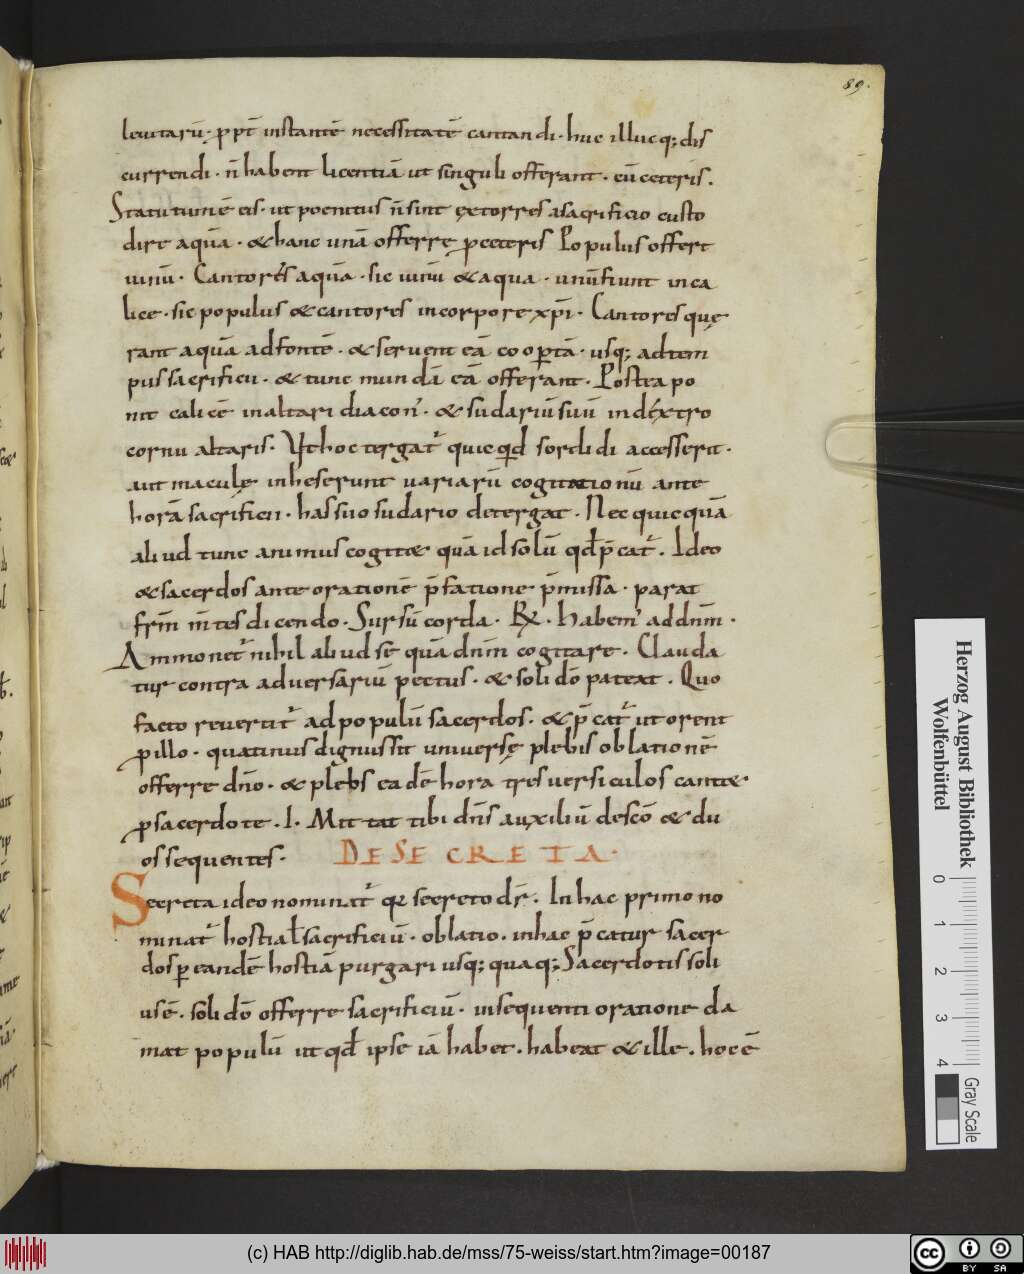 89.
leuitarū· ꝓpt̄ instantē necessitatē cantandi· huc illucq; dis
currendi· n̄ habent licentiā ut singuli offerant· cū ceteris.
Statutum ē eis· ut poenitus n̄ sint extorres a sacrificio custo
dire aquā· & hanc unā offerre ꝓ ceteris Populus offert
uinū· Cantores aquā· sic uinū & aqua· unū fiunt in ca
lice· sic populus & cantores in corpore xp̄i· Cantores quę
rant aquā ad fontē· & seruent eā coopertā· usq; ad tem
pus sacrificii· & tunc mundā eā offerant· Postea po
nit calicē in altari diacon̄· & sudariū suū in dextro
cornu altaris. Vt hoc tergat᷒ quicqd̄ sordidi accesserit·
aut maculę inheserunt uariarū cogitationū ante
horā sacrificii· has suo sudario detergat. Nec quicquā
aliud tunc animus cogit& quā id solū qd̄ p̄cat᷒. Ideo
& sacerdos ante orationē p̄fatione p̄missa· parat
fr̄m m̄tes dicendo· Sursū corda· R̄· Habem᷒ ad dnm̄·
Ammonet᷒ nihil aliud se quā dnm̄ cogitare. Clauda
tur contra aduersariū pectus· & soli dō pateat. Quo
facto reuertit᷒ ad populū sacerdos· & p̄cat᷒ ut orent
ꝓ illo· quatinus dignus sit uniuersę plebis oblationē
offerre dn̄o· & plebs eadē hora tres uersiculos cant&
ꝓ sacerdote. I. Mittat tibi dn̄s auxiliū de scō & du
os sequentes·
DE SECRETA·
Secreta ideo nominat᷒ qꝛ secreto dr̄. In hac primo no
minat᷒ hostia ł sacrificiū· oblatio. in hac p̄catur sacer
dos ꝑ eandē hostiā purgari usq; quaq; Sacerdotis soli
us ē· soli dō offerre sacrificiū· in sequenti oratione da
mat populū ut qd̄ ipse iā habet· habeat & ille. hoc ē
Herzog August Bibliothek
Wolfenbüttel
0
1
2
3
4
Gray Scale
(c) HAB http://diglib.hab.de/mss/75-weiss/start.htm?image=00187
cc BY SA